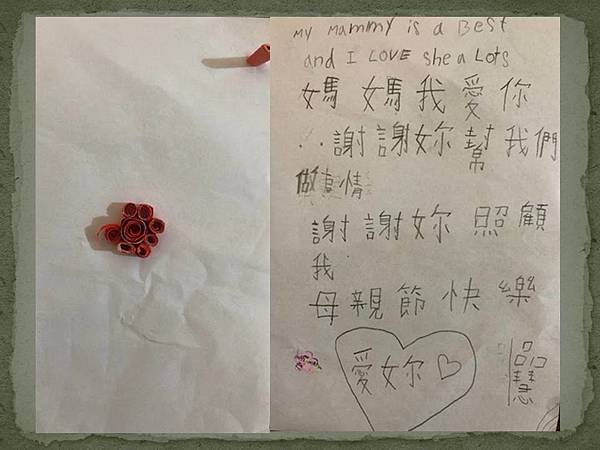 My Mammy is a Best
and I LOVE she a Lots
媽媽我愛你
謝謝妳幫我們
做事情
謝謝妳照顧
我
母親節快樂
愛妳
慧